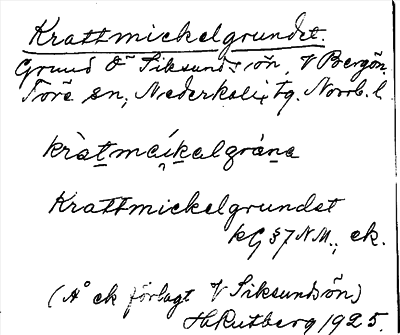 Krattmickelgrundet.
Grund O Siksundsön, V Bergön.
Töre sn, Nederkalix tg. Norrb. l.
kràtmaíkalgràna
Krattmickelgrundet
kG §7 NM., ek.
(Å ek förlagt V Siksundsön)
H Rutberg 1925.